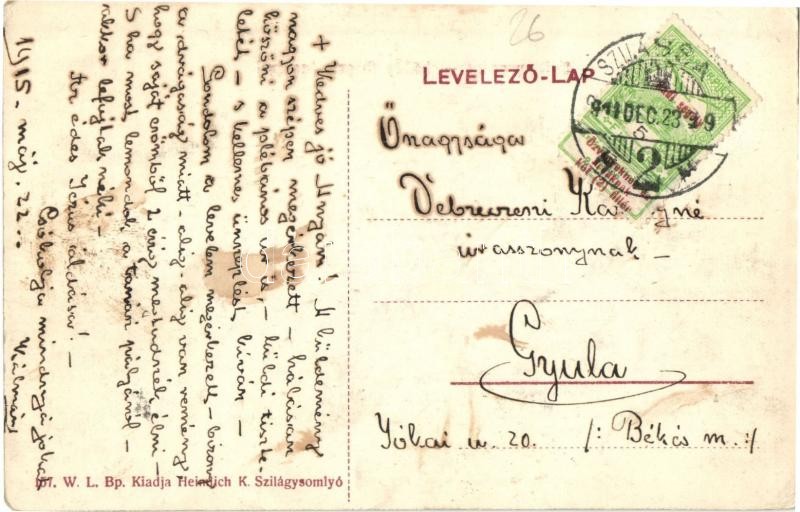 26
LEVELEZŐ-LAP
SZILÁGY
911 DEC. 23
Őnagysága
Debreceni Ka né
úrasszonynak -
Gyula
Jókai u. 20. /: Békés m :/
+ Kedves jó Anyám! A küldemény
nagyon szépen megérkezett - hálásan
köszöni a plébános úr is, - küldi tiszte-
letét - s kellemes ünneplést kíván -
Gondolom a levelem megérkezett - bizony
a drágaság miatt - alig alig van remény
hogy saját erőmből 2 évig
S ha most lemondok a tanári pályáról -
akkor lefújtak neki -
Az édes Jézus áldása! -
Csókolja mindnyájokat
Kálmán
1915. máj. 22.
157. W. L. Bp. Kiadja Heinrich K. Szilágysomlyó